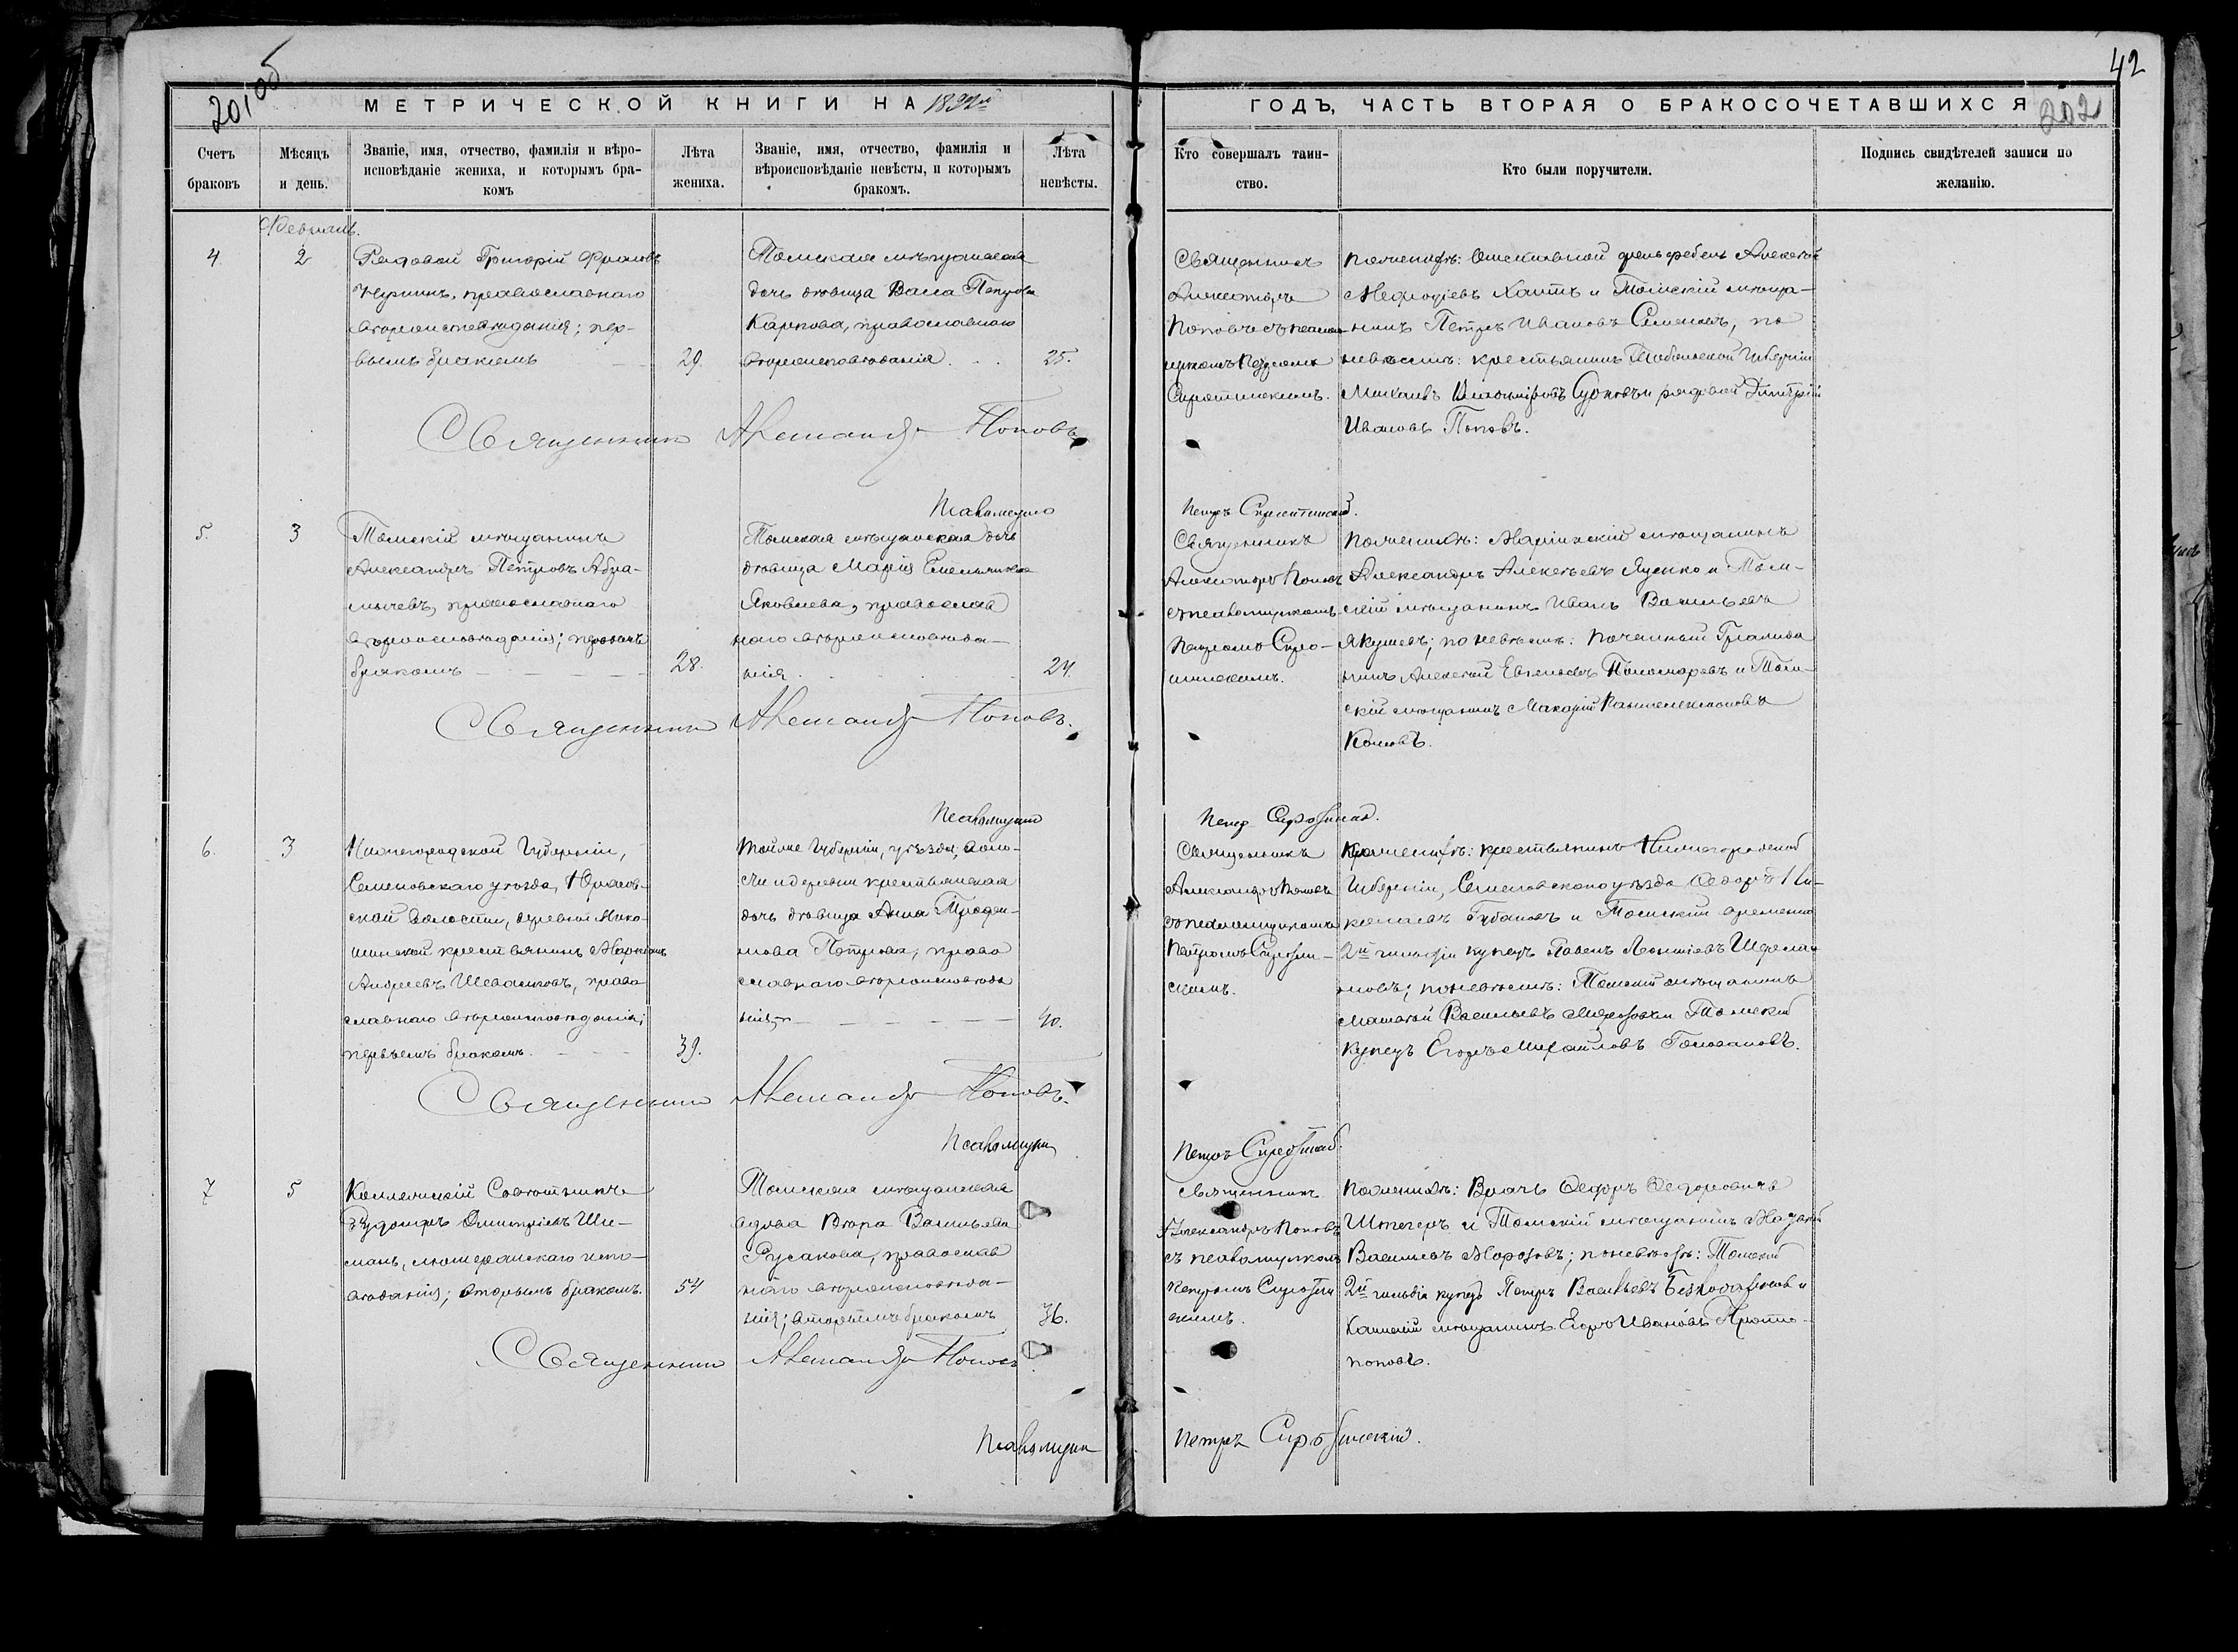 201об
42
202
МЕТРИЧЕСКОЙ КНИГИ НА 1892й
ГОДЪ, ЧАСТЬ ВТОРАЯ О БРАКОСОЧЕТАВШИХСЯ
Счетъ
браковъ
Мѣсяцъ
и день.
Званіе, имя, отчество, фамилія и вѣро-
исповѣданіе жениха, и которымъ бра-
комъ
Лѣта
жениха.
Званіе, имя, отчество, фамилія и
вѣроисповѣданіе невѣсты, и которымъ
бракомъ.
Лѣта
невѣсты.
Кто совершалъ таин-
ство.
Кто были поручители.
Подпись свидѣтелей записи по
желанію.
Февраль.
4.
2
Рядовой Григорій Фроловъ
православнаго
вѣроисповѣданія; пер-
вымъ бракомъ
29.
Томская мѣщанская
дочь дѣвица Васса Петрова
Карпова, православнаго
вѣроисповѣданія.
25.
Священникъ
Александръ
Поповъ съ псалом-
щикомъ Петромъ
Сиротинскимъ.
по женихѣ: Отставной фельдфебель Алексѣй
Меѳодіевъ и Томскій мѣща-
нинъ Петръ Ивановъ Семеновъ, по
невѣстѣ: крестьянинъ Тобольской Губерніи
Михаилъ и рядовой Димитрій
Ивановъ Поповъ.
Священникъ Александръ Поповъ
Псаломщикъ
Петръ Сиротинскій.
5.
3
Томскій мѣщанинъ
Александръ Петровъ Абра-
мычевъ, православнаго
вѣроисповѣданія; первымъ
бракомъ
28.
Томская мѣщанская дочь
дѣвица Марія Емельянова
Яковлева, православ
наго вѣроисповѣда-
нія
24.
Священникъ
Александръ Поповъ
съ псаломщикомъ
Петромъ Сиро-
тинскимъ.
по женихѣ: Маріинскій мѣщанинъ
Александръ Алексѣевъ Яценко и Том-
скій мѣщанинъ Иванъ Васильевъ
Якушевъ; по невѣстѣ: Почетный Гражда
нинъ Алексѣй Евгеньевъ Пономаревъ и Том-
скій мѣщанинъ Макарій
Священникъ Александръ Поповъ.
Псаломщикъ
Петръ Сиротинскій.
6.
3
Нижегородской Губерніи,
Семеновскаго уѣзда,
ской волости, деревни
крестьянинъ
Андреевъ право
славнаго вѣроисповѣданія;
первымъ бракомъ.
39.
Той же Губерніи, уѣзда, воло-
сти и деревни крестьянская
дочь дѣвица Анна
мова Петрова, право
славнаго вѣроисповѣда
нія
40.
Священникъ
Александръ Поповъ
съ псаломщикомъ
Петромъ Сироти-
скимъ.
по женихѣ: крестьянинъ Нижегородской
Губерніи, Семеновскаго уѣзда Ѳедоръ Ни-
колаевъ Губановъ и Томскій временно
2й гильдіи купецъ Павелъ Леонтіевъ
новъ; по невѣстѣ: Томскій мѣщанинъ
Матвѣй Васильевъ Морозовъ и Томскій
купецъ Егоръ Михайловъ Головановъ.
Священникъ Александръ Поповъ.
Псаломщикъ
Петръ Сиротинскій.
7
5
Коллежскій Совѣтникъ
Димитріевъ Ши-
манъ, лютеранскаго испо-
вѣданія; вторымъ бракомъ.
54
Томская мѣщанская
вдова Вѣра Васильева
Русакова, православ
наго вѣроисповѣда-
нія; вторымъ бракомъ
36.
Священникъ
Александръ Поповъ
съ псаломщикомъ
Петромъ Сироти
скимъ.
по женихѣ: Врачъ Ѳедоръ Ѳедоровичъ
Штегеръ и Томскій мѣщанинъ
Васильевъ Морозовъ; по невѣстѣ: Томскій
2й гильдіи купецъ Петръ Васильевъ и
мѣщанинъ Егоръ Ивановъ Прото-
поповъ.
Священникъ Александръ Поповъ
Псаломщикъ
Петръ Сиротинскій.